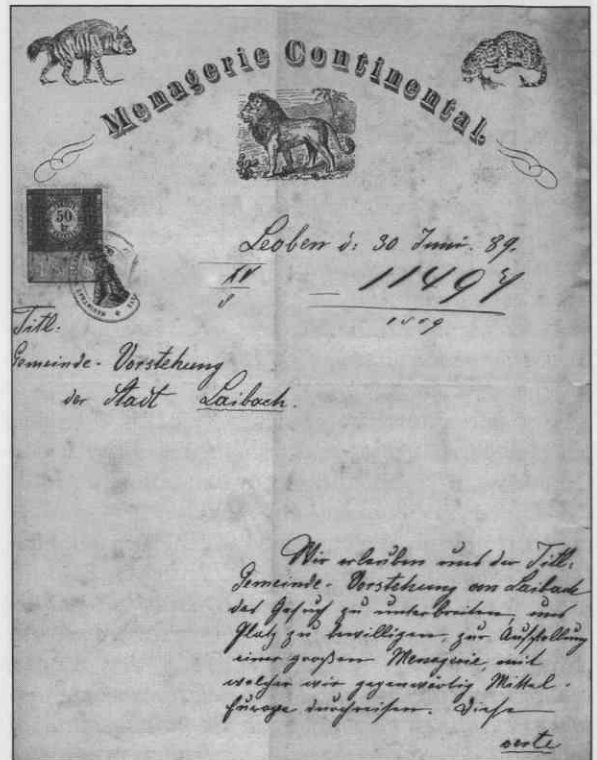 Menagerie Continental.
50
kr
Leoben d: 30 Juni. 89.
XV
8
11497
1889
Titl:
Gemeinde-Vorstehung
der Stadt Laibach.
Wir erlauben uns der Titl:
Gemeinde-Vorstehung von Laibach
das Gesuch zu unterbreiten, uns
Platz zu bewilligen, zur Aufstellung
einer großen Menagerie, mit
welcher wir gegenwärtig Mittel-
Europa durchreisen. Diese